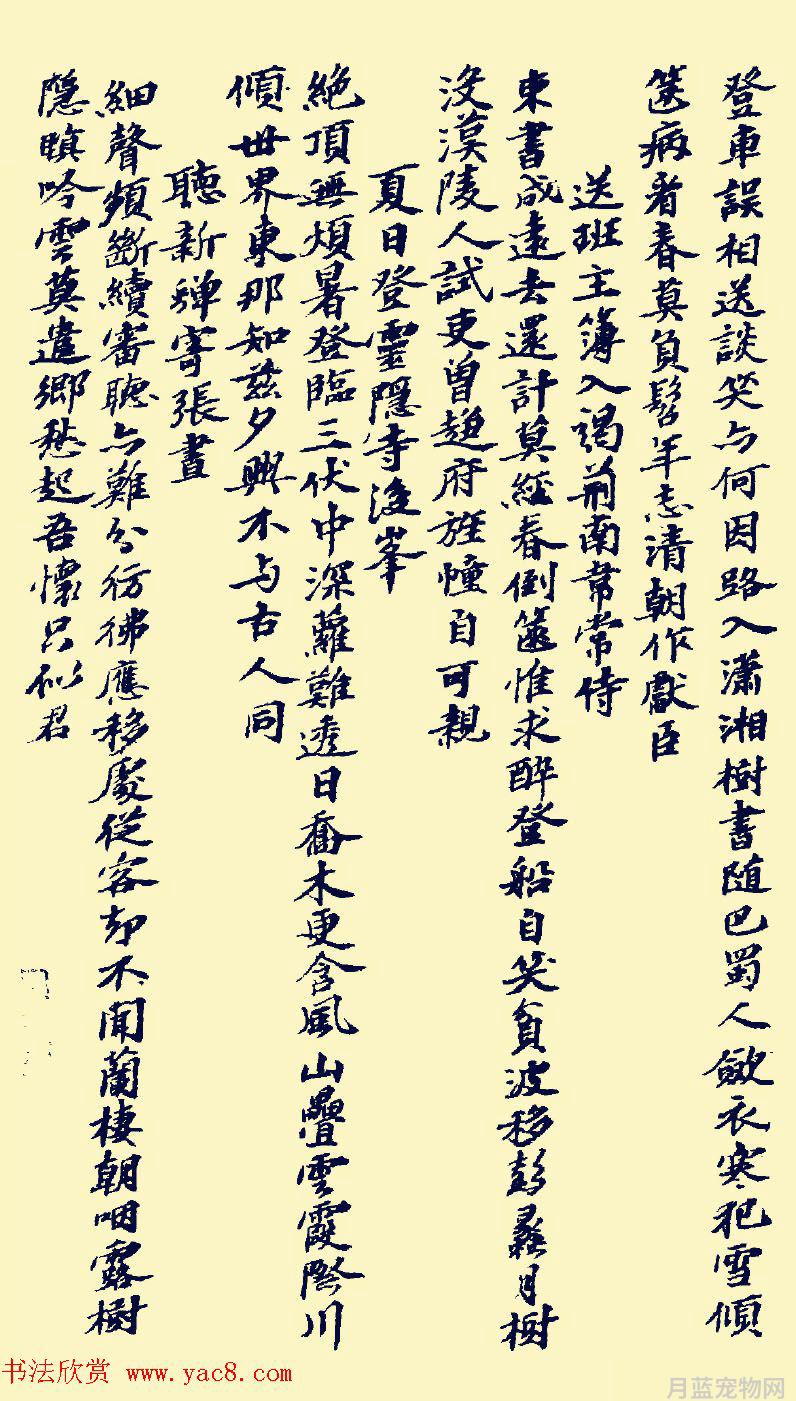 登車誤相送談笑与何因路入瀟湘樹書随巴蜀人斂衣寒犯雪傾
篋病看春莫負髫年志清朝作獻臣
送班主簿入謁荊南韋常侍
東書成遠去還計莫經春倒篋惟求醉登船自笑貧波移彭蠡月樹
没漢陵人試吏曾趨府旌幢自可親
夏日登靈隱寺後峯
絶頂無煩暑登臨三伏中深蘿難透日喬木更含風山疊雲霞際川
傾世界東那知茲夕興不与古人同
聽新蟬寄張晝
細聲頻斷續審聽亦難分彷彿應移處從容却不聞蘭棲朝咽露樹
隱暝吟雲莫遣鄉愁起吾懷只似君
书法欣赏 www.yac8.com
月蓝宠物网